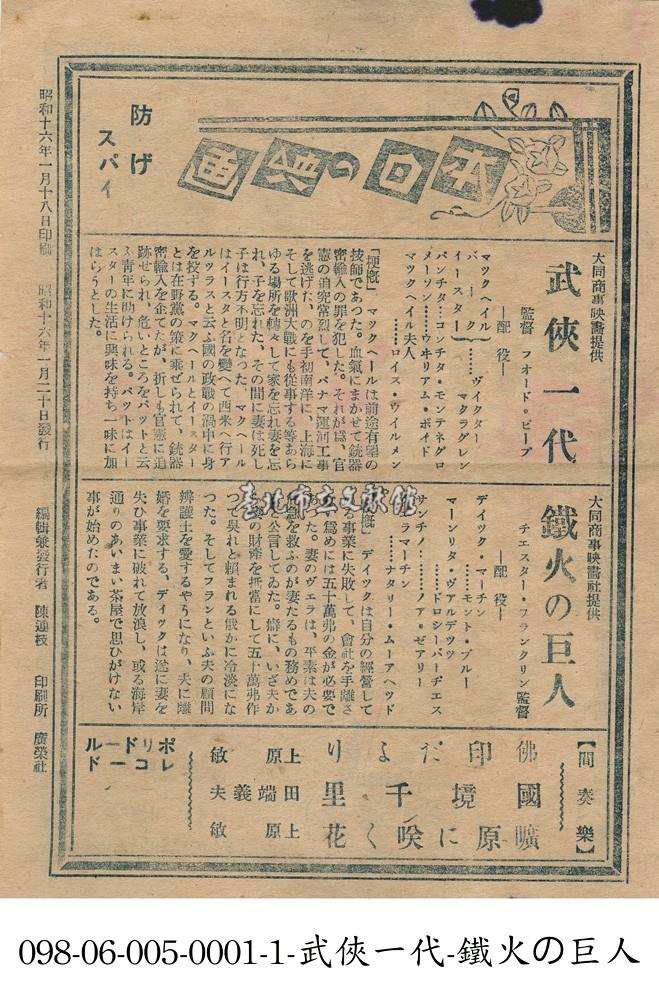 本日の映画
防げ
スパイ
大同商事映畵提供
武俠一代
監督 フオード・ビーブ
―配役―
マツクヘイル
バーク
イースター
……ヴイクター マクラグレン
パンチタ…コンチタ・モンテネグロ
メーソン……ウキリアム・ボイド
マツクヘイル夫人
……ロイス・ウイルメン
「梗概」 マツクヘールは前途有望の
技師であつた。血氣にまかせて銃器
密輸入の罪を犯した。それが爲、官
憲の追究常烈して、パナマ運河工事
を逃げた、のを手初南洋に、上海に
そして歐洲大戰にも從事する等あら
ゆる場所を轉々して家を忘れ妻を忘
れ、子を忘れた、その間に妻は死し
子は行方不明となつた。マクヘール
はイースタと名を變へて西米へ行ア
ルツラスと云ふ國の政戰の渦中に身
を投ずる。マクヘールとイースター
とは在野黨の策に乘ぜられて、銃器
密輸入を企てたが、折しも官憲に追
跡せられ、危いところをバツトと云
ふ靑年に助けられる。バツトはイー
スターの生活に興味を持ち一味に加
はらうとした。
大同商事映畵社提供
鐵火の巨人
チエスター・フランクリン監督
―配役―
デイツク・マーチン
……モント・ブルー
マーンリタ・ヴアルデツツ
……ドロシーバーヂエス
サンチノ……ノア・ゼアリー
ラマーチン
……ナタリー・ムーアヘツド
デイツクは自分の經營して
る事業に失敗して、會社を手離さ
爲めには五十萬弗の金が必要で
た。妻のヴエラは、平素は夫の
急を救ふのが妻たるもの務めであ
公言してゐた。癖に、いざ夫か
の財產を抵當にして五十萬弗作
つて吳れと賴まれる俄かに冷淡にな
つた。そしてフランといふ夫の顧問
辨護士を愛するやうになり、夫に離
婚を要求する、デイツクは遂に妻を
失ひ事業に破れて放浪し、或る海岸
通りのあいまい茶屋で思ひがけない
事が始めたのである。
【間奏樂】
佛印だより
國境千里
曠原に咲く花
上原敏
田端義夫
上原敏
ポリドール
レコード
昭和十六年一月十八日印刷 昭和十六年一月二十日發行 編輯兼發行者 陳連枝 印刷所 廣榮社
臺北市立文獻館
098-06-005-0001-1-武俠一代-鐵火の巨人